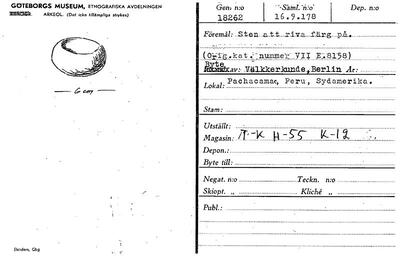 GÖTEBORGS MUSEUM, ETNOGRAFISKA AVDELNINGEN
ARKEOL. (Det icke tillämpliga strykes)
6 cm
Elanders, Gbg
Gen: n:o 18262
Saml. n:o 16.9.178
Dep. n:o
Föremål: Sten att riva färg på.
(Orig.kat. nummer VII E.8158)
Byte
av: Völkerkunde, Berlin År:
Lokal: Pachacamac, Peru, Sydamerika.
Stam:
Utställt:
Magasin: H-55 K-12
Depon.:
Byte till:
Negat. n:o Teckn. n:o
Skiopt. „ Kliché „
Publ.: